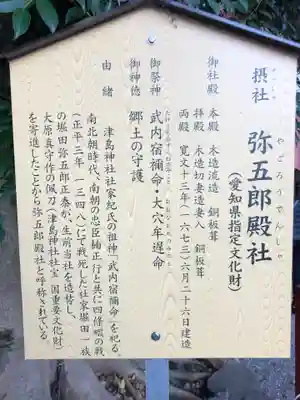 摂社 弥五郎殿社
やごろうでんしゃ
(愛知県指定文化財)
御社殿 本殿 木造流造 銅板葺
拝殿 木造切妻造妻入 銅板葺
両殿 寛文十三年(一六七三)六月二十六日建造
御祭神 武内宿禰命・大穴牟遅命
御神徳 郷土の守護
由緒 津島神社社家紀氏の祖神「武内宿禰命」を祀る。
南北朝時代、南朝の忠臣楠正行と共に四條畷の戦
(正平三年 一三四八)にて戦死した社家堀田一族
の堀田弥五郎正泰が、生前当社を造替し、
大原真守作の佩刀(津島神社社宝 国重要文化財)
を寄進したことから弥五郎殿社と呼称されている